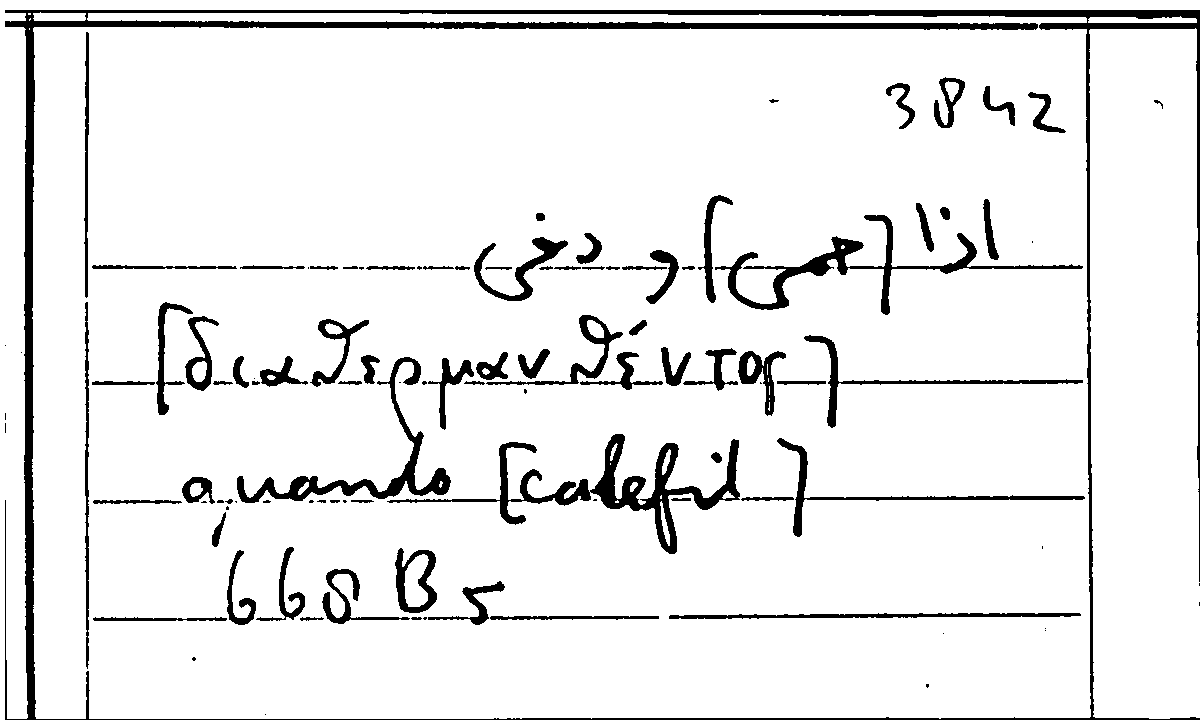 3842
اذا [حمى] ودفى
[διαθερμανθέντος]
quando [calefit]
668 B 5